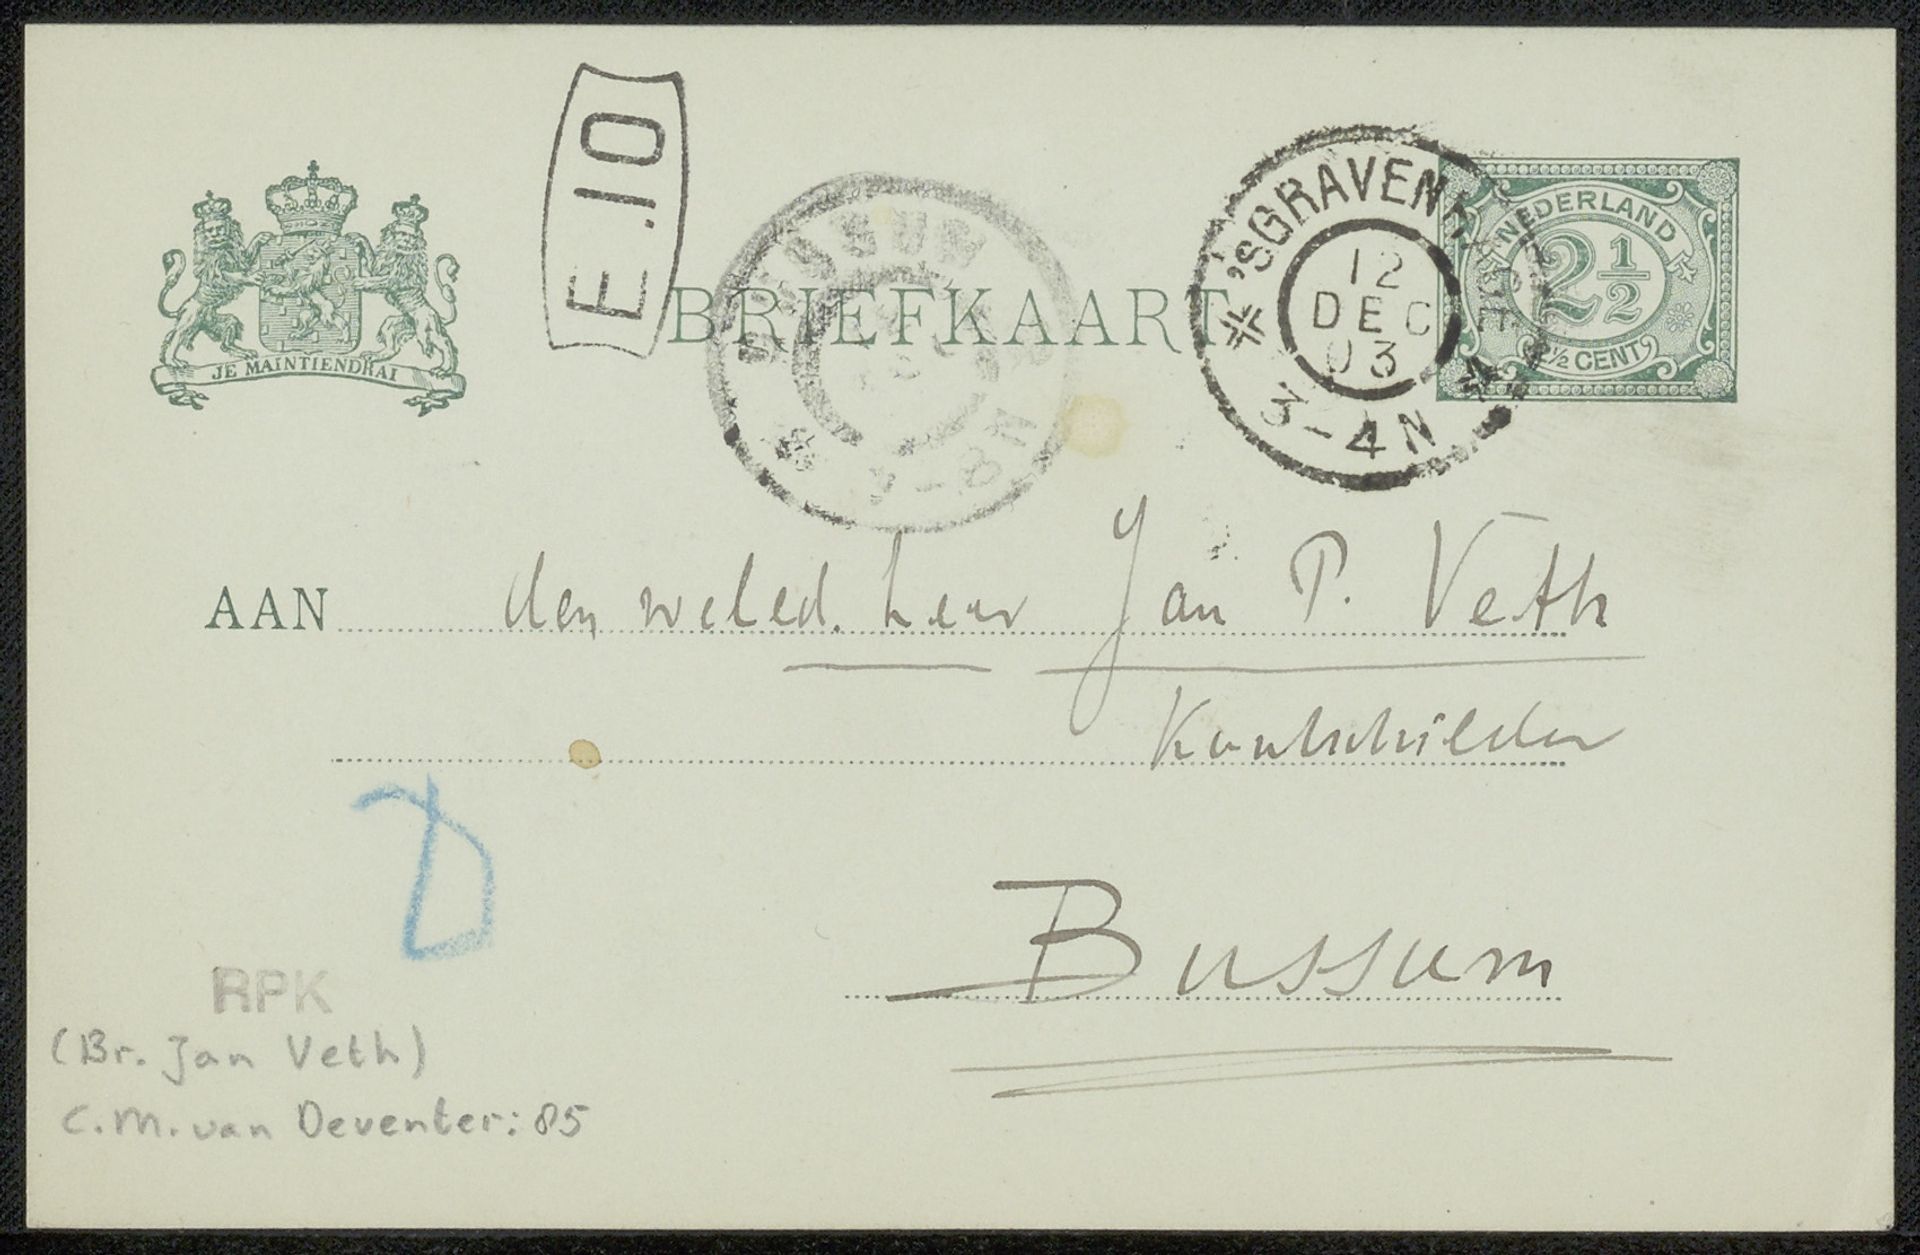 E.10
JE MAINTIENDRAI
BRIEFKAART
BUSSUM
7-8N
'SGRAVENHAGE
12
DEC
03
3-4N
NEDERLAND
2 1/2
2 1/2 CENT
AAN den weled. heer Jan P. Veth
Kunstschilder
Bussum
RPK
(Br. Jan Veth)
C.M. van Deventer: 85